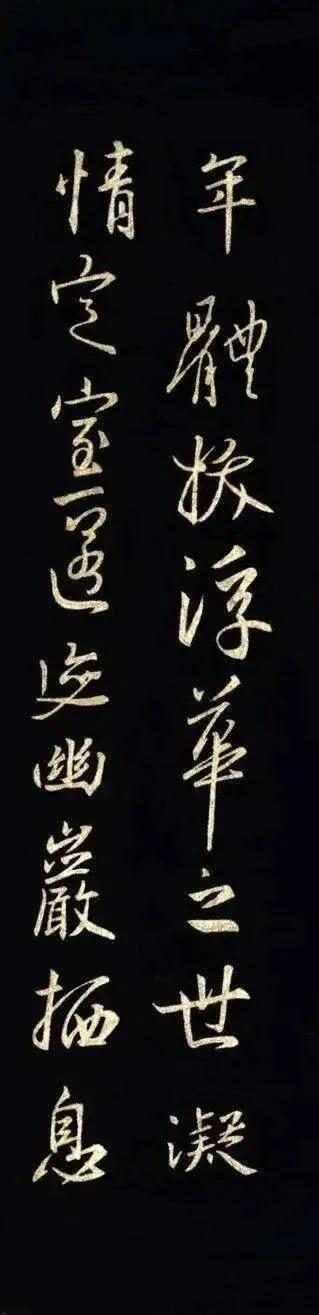 年體拔浮華之世凝
情定室匿迹幽巖栖息